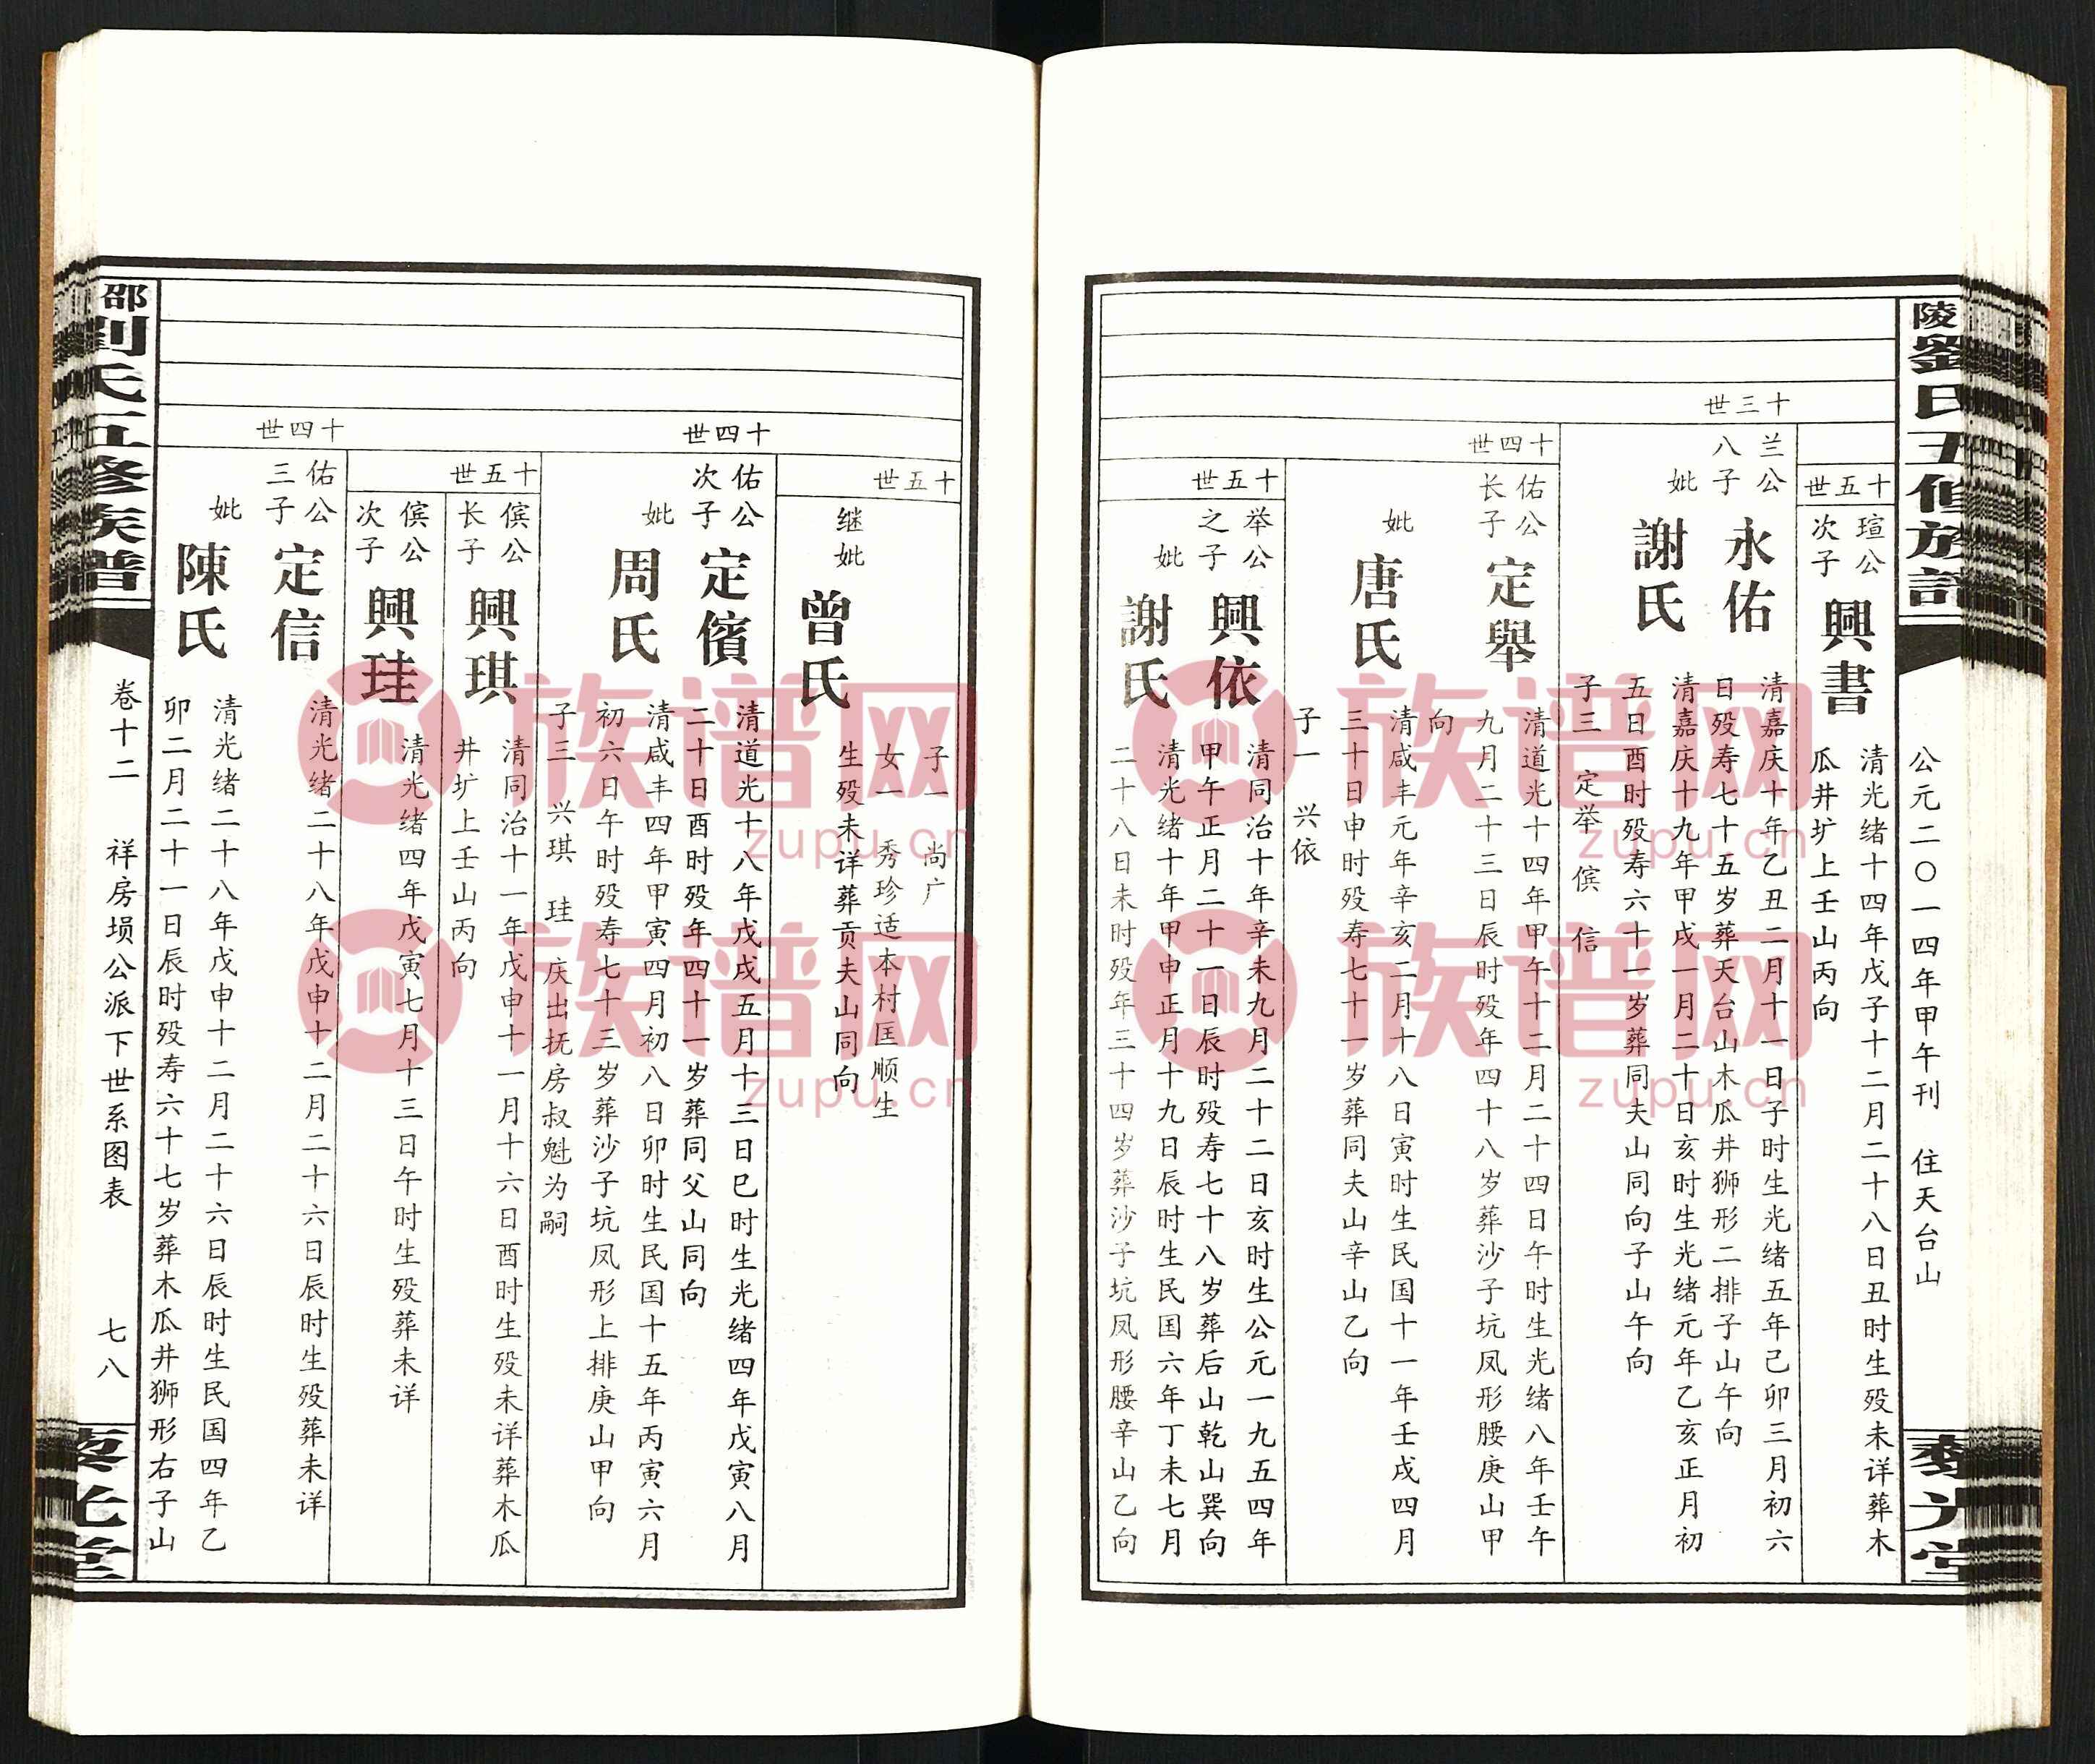 陵
劉氏五修族譜
公元二〇一四年甲午刊　住天台山
藜光堂
十五世
瑄公
次子
興書
清光绪十四年戊子十二月二十八日丑时生殁未详葬木
瓜井圹上壬山丙向
十三世
兰公
八子
永佑
清嘉庆十年乙丑二月十一日子时生光绪五年己卯三月初六
日殁寿七十五岁葬天台山木瓜井狮形二排子山午向
妣
謝氏
清嘉庆十九年甲戌一月二十日亥时生光绪元年乙亥正月初
五日酉时殁寿六十一岁葬同夫山同向子山午向
子三　定举　傧　信
十四世
佑公
长子
定舉
清道光十四年甲午十二月二十四日午时生光绪八年壬午
九月二十三日辰时殁年四十八岁葬沙子坑凤形腰庚山甲
向
妣
唐氏
清咸丰元年辛亥二月十八日寅时生民国十一年壬戌四月
三十日申时殁寿七十一岁葬同夫山辛山乙向
子一　兴依
十五世
举公
之子
興依
清同治十年辛未九月二十二日亥时生公元一九五四年
甲午正月二十一日辰时殁寿七十八岁葬后山乾山巽向
妣
謝氏
清光绪十年甲申正月十九日辰时生民国六年丁未七月
二十八日未时殁年三十四岁葬沙子坑凤形腰辛山乙向
十五世
子一　尚广
女一　秀珍适本村匡顺生
继妣
曾氏
生殁未详葬贡夫山同向
十四世
佑公
次子
定儐
清道光十八年戊戌五月十三日巳时生光绪四年戊寅八月
二十日酉时殁年四十一岁葬同父山同向
妣
周氏
清咸丰四年甲寅四月初八日卯时生民国十五年丙寅六月
初六日午时殁寿七十三岁葬沙子坑凤形上排庚山甲向
子三　兴琪　珪　庆出抚房叔魁为嗣
十五世
傧公
长子
興琪
清同治十一年戊申十一月十六日酉时生殁未详葬木瓜
井圹上壬山丙向
傧公
次子
興珪
清光绪四年戊寅七月十三日午时生殁葬未详
十四世
佑公
三子
定信
清光绪二十八年戊申十二月二十六日辰时生殁葬未详
妣
陳氏
清光绪二十八年戊申十二月二十六日辰时生民国四年乙
卯二月二十一日辰时殁寿六十七岁葬木瓜井狮形右子山
邵
劉氏五修族譜
卷十二　祥房埙公派下世系图表　七八
藜光堂
族谱网
zupu.cn
族谱网
zupu.cn
族谱网
zupu.cn
族谱网
zupu.cn